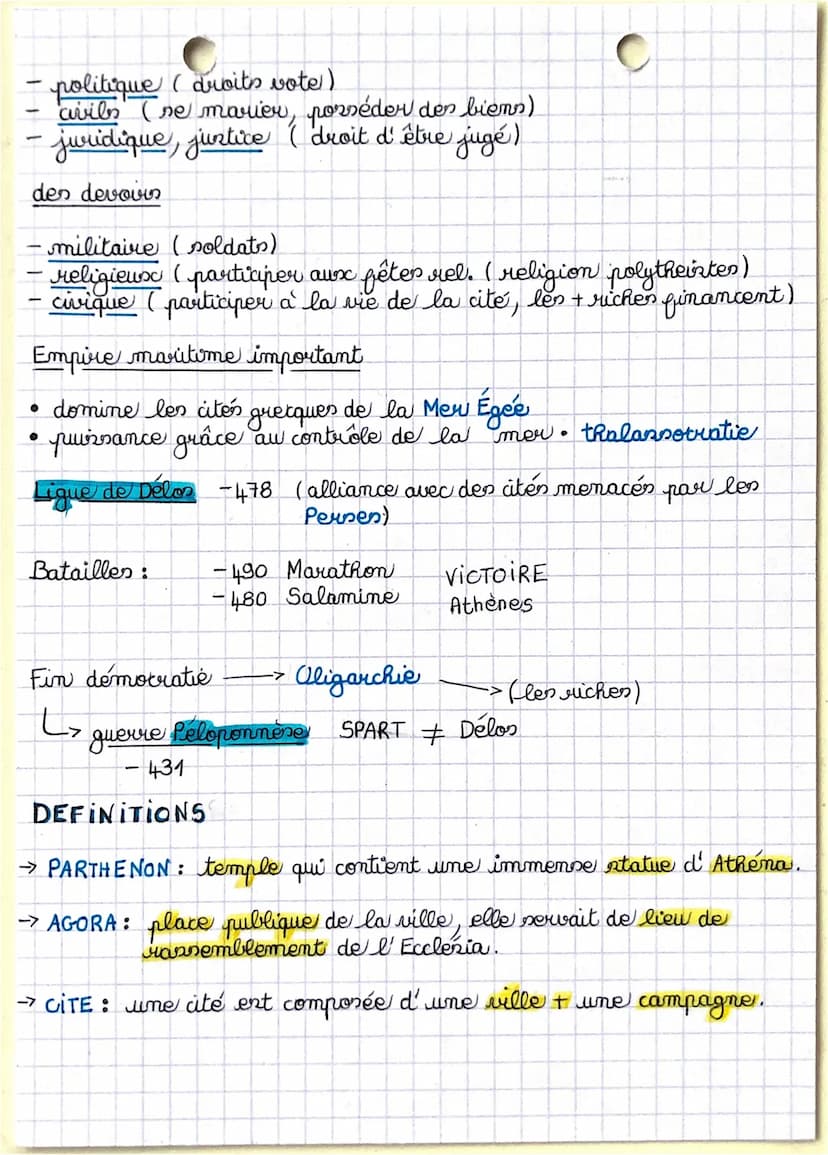 - politique (droits vote)
- civils (se marier, posséder des biens)
- juridique, justice (droit d'être jugé)
des devoirs
- militaire (soldats)
- religieux (participer aux fêtes rel. (religion polytheistes)
- civique (participer à la vie de la cité, les + riches financent)
Empire maritime important
• domine les cités grecques de la Mer Égée
• puissance grâce au contrôle de la mer • thalassocratie
Ligue de Délos -478 (alliance avec des cités menacés par les
Perses)
Batailles : -490 Marathon VICTOIRE
-480 Salamine Athènes
Fin démocratie → Oligarchie → (les riches)
↳ guerre Péloponnèse SPART ≠ Délos
- 431
DEFINITIONS
→ PARTHENON : temple qui contient une immense statue d'Athéna.
→ AGORA : place publique de la ville, elle servait de lieu de
rassemblement de l'Ecclésia.
→ CITE : une cité est composée d'une ville + une campagne.